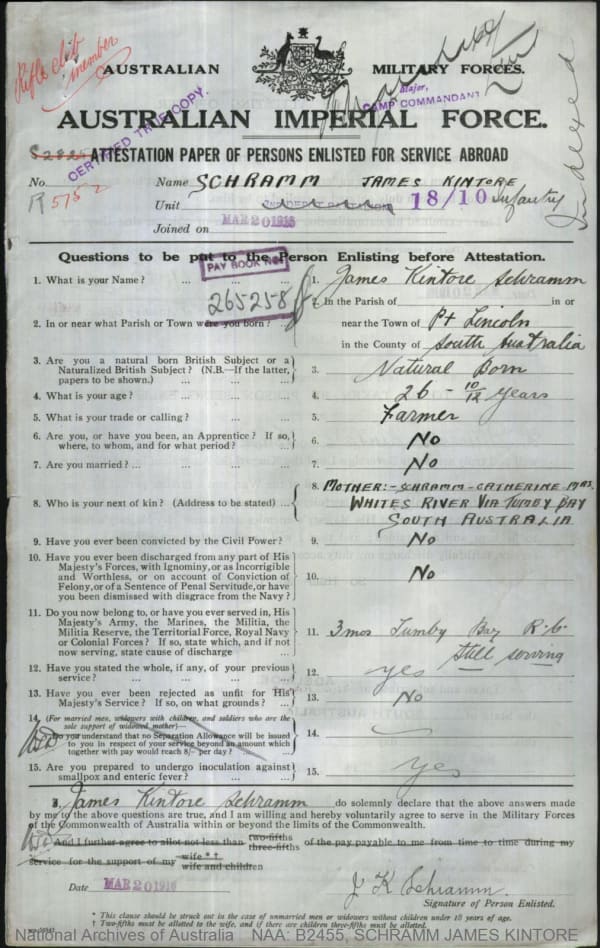 Rifle club
member
AUSTRALIAN MILITARY FORCES.
Major,
CAMP COMMANDANT
CERTIFIED TRUE COPY.
Indexed
AUSTRALIAN IMPERIAL FORCE.
ATTESTATION PAPER OF PERSONS ENLISTED FOR SERVICE ABROAD
No. R 5752 Name SCHRAMM JAMES KINTORE
Unit 18/10 Infantry
Joined on MAR 20 1916
Questions to be put to the Person Enlisting before Attestation.
PAY BOOK No.
265258
1. What is your Name? ... ... ... 1. James Kintore Schramm
2. In or near what Parish or Town were you born? 2. In the Parish of in or
near the Town of Pt Lincoln
in the County of South Australia
3. Are you a natural born British Subject or a
Naturalized British Subject? (N.B.—If the latter,
papers to be shown.) ... ... 3. Natural Born
4. What is your age? ... ... ... 4. 26 - 10/12 years
5. What is your trade or calling? ... ... 5. Farmer
6. Are you, or have you been, an Apprentice? If so,
where, to whom, and for what period? ... 6. No
7. Are you married? ... ... ... 7. No
8. Who is your next of kin? (Address to be stated) ... 8. MOTHER:- SCHRAMM - CATHERINE MRS.
WHITES RIVER VIA TUMBY BAY
SOUTH AUSTRALIA
9. Have you ever been convicted by the Civil Power? 9. No
10. Have you ever been discharged from any part of His
Majesty's Forces, with Ignominy, or as Incorrigible
and Worthless, or on account of Conviction of
Felony, or of a Sentence of Penal Servitude, or have
you been dismissed with disgrace from the Navy? 10. No
11. Do you now belong to, or have you ever served in, His
Majesty's Army, the Marines, the Militia, the
Militia Reserve, the Territorial Force, Royal Navy
or Colonial Forces? If so, state which, and if not
now serving, state cause of discharge ... 11. 3 mos Tumby Bay R.C.
Still serving
12. Have you stated the whole, if any, of your previous
service? ... ... ... 12. yes
13. Have you ever been rejected as unfit for His
Majesty's Service? If so, on what grounds? ... 13. No
14. (For married men, widowers with children, and soldiers who are the
sole support of widowed mother)—
Do you understand that no Separation Allowance will be issued
to you in respect of your service beyond an amount which
together with pay would reach 8/- per day? 14.
15. Are you prepared to undergo inoculation against
smallpox and enteric fever? ... ... 15. Yes
I, James Kintore Schramm do solemnly declare that the above answers made
by me to the above questions are true, and I am willing and hereby voluntarily agree to serve in the Military Forces
of the Commonwealth of Australia within or beyond the limits of the Commonwealth.
And I further agree to allot not less than two-fifths three-fifths of the pay payable to me from time to time during my
service for the support of my wife*†
wife and children
Date MAR 20 1916 J K Schramm
Signature of Person Enlisted.
* This clause should be struck out in the case of unmarried men or widowers without children under 18 years of age.
† Two-fifths must be allotted to the wife, and if there are children three-fifths must be allotted.
National Archives of Australia NAA: B2455, SCHRAMM JAMES KINTORE